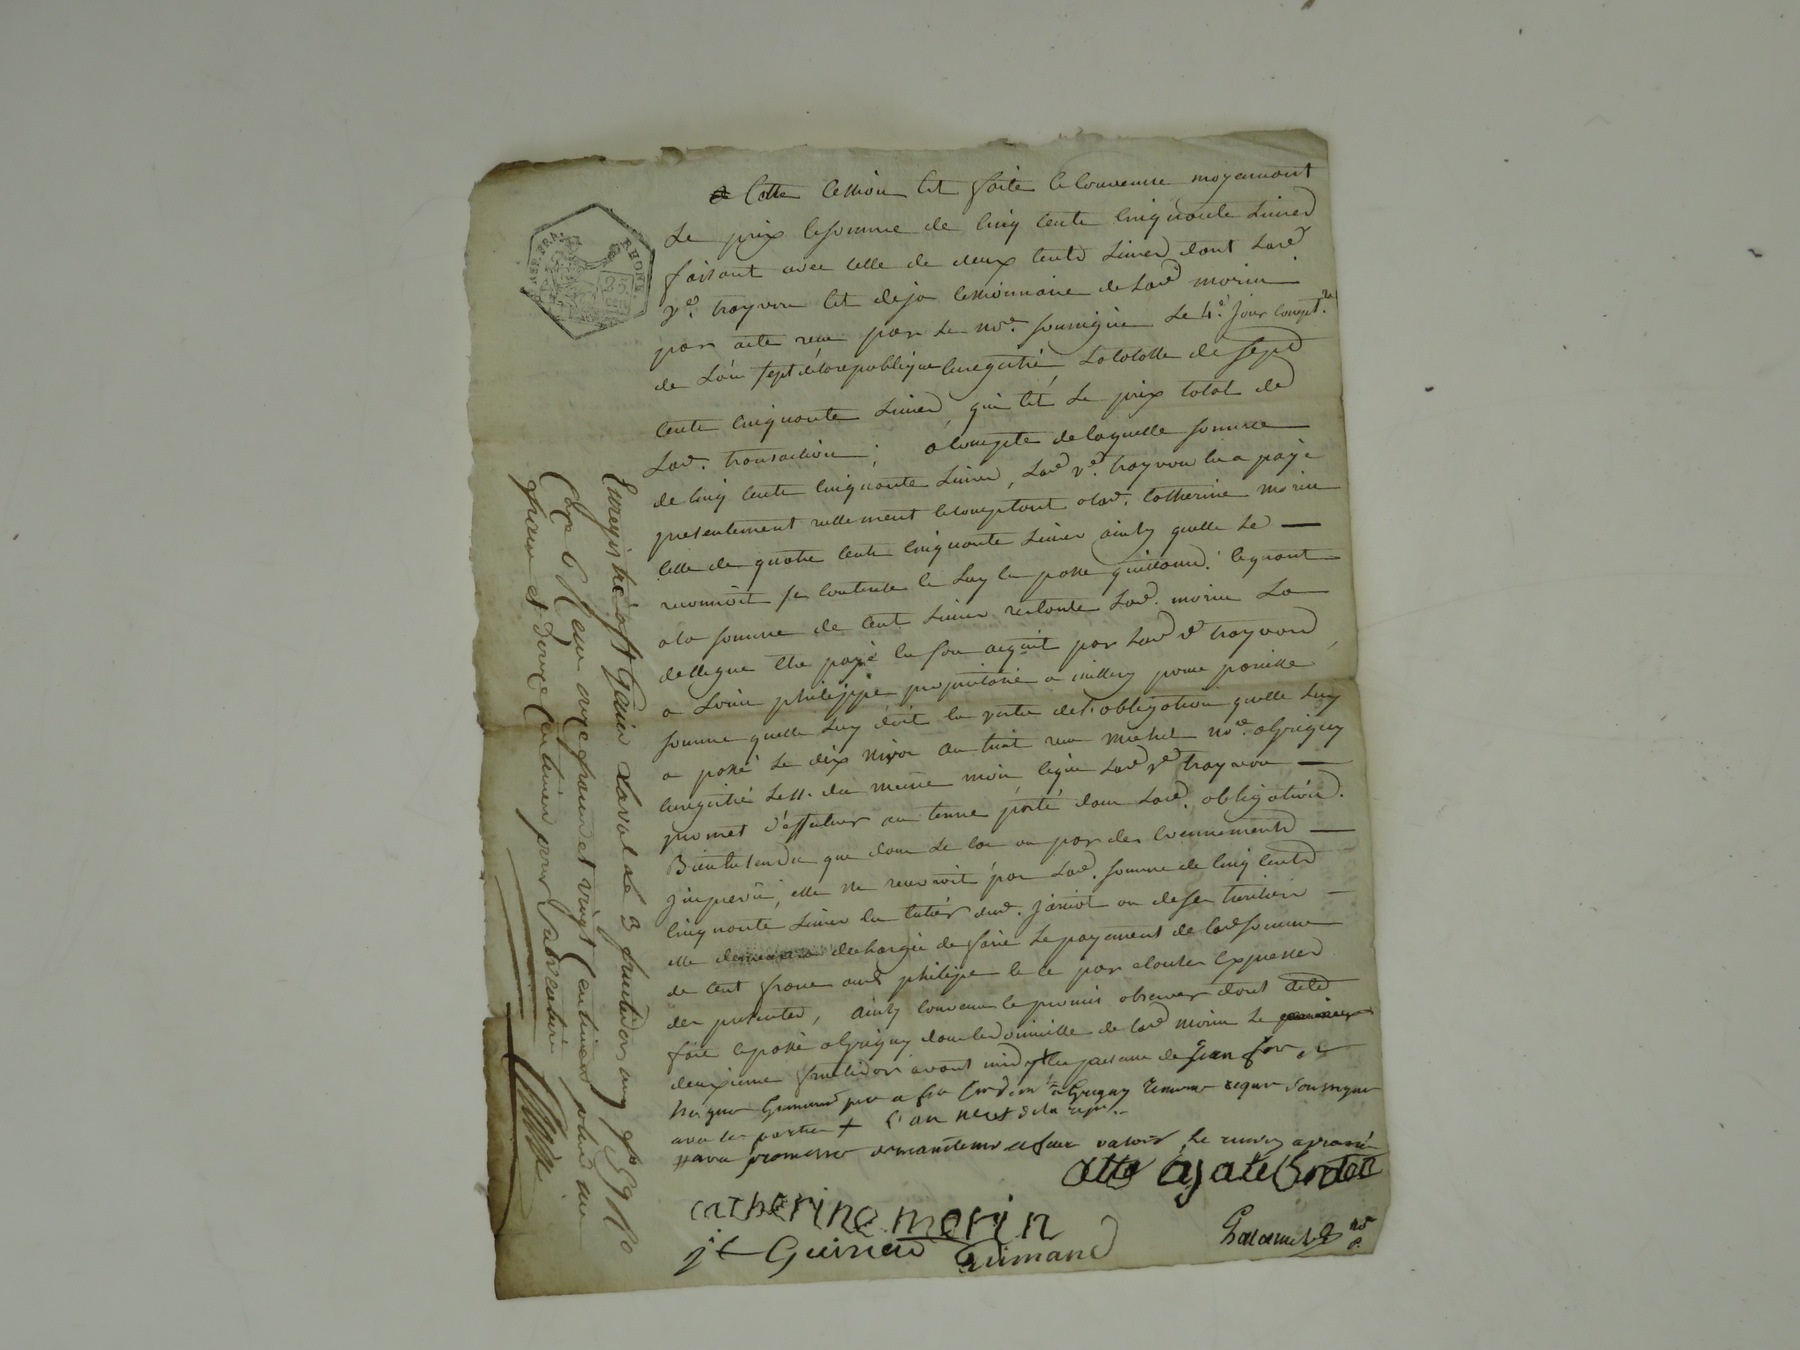 Cette cession est faite et convenue moyennant
Le prix et somme de cinq cents cinquante Livres
faisant avec celle de deux cents Livres dont Lad
Ve. trayvon est deja cessionnaire de Lad morin
par acte reçu par le no.re soussigné Le 4e. Jour compt.re
de L'an sept de la republique enregistré, La totalle de sept
cents cinquante Livres, qui est Le prix total de
Lad. transaction; a compte de laquelle somme
de cinq cents cinquante Livres, Lad ve. trayvon en a payé
presentement reellement et comptant a lad. Catherine morin
celle de quatre cents cinquante Livres ainsy quelle Le
reconnoit se contente et Luy en passe quittance. et quant
a la somme de cent Livres restante Lad. morin La
delegue etre payé en son acquit par Lad ve trayvon
a Louis philippe proprietaire a millery pour pareille
somme quelle Luy doit en vertu de l'obligation quelle Luy
a passé Le dix nivose an huit reçu no.re a Grigny
enregistré Le 11. du meme mois ce que Lad ve trayvon
promet d'effectuer au terme porté dans Lad. obligation.
Bien entendu que dans Le cas ou par des evennements
imprevus, elle ne recevroit pas Lad. somme de cinq cents
cinquante Livres en entier dud. janiot ou de ses heritiers
elle dechargée de faire Le payement de lad somme
de cent francs aud philipe et ce par clause expresse
des presentes, ainsy convenu et promis observer dont acte
fait et passé a Grigny dans le domicille de lad morin Le
deuxieme fructidor avant midy en presence de jean
a Grigny temoins requis soussignés
avec les parties + L'an neuf de la rep.
sous promesse de maintenir et faire valoir
catherine morin
jt Guinand Guimand
Enregistré à St Genis Laval Le 3 fructidor an 9 fo 59 Ro
C 6 Reçu onze francs et vingt centimes plus un
franc et douze centimes pour subvention
REP. FRA.
RHONE
25